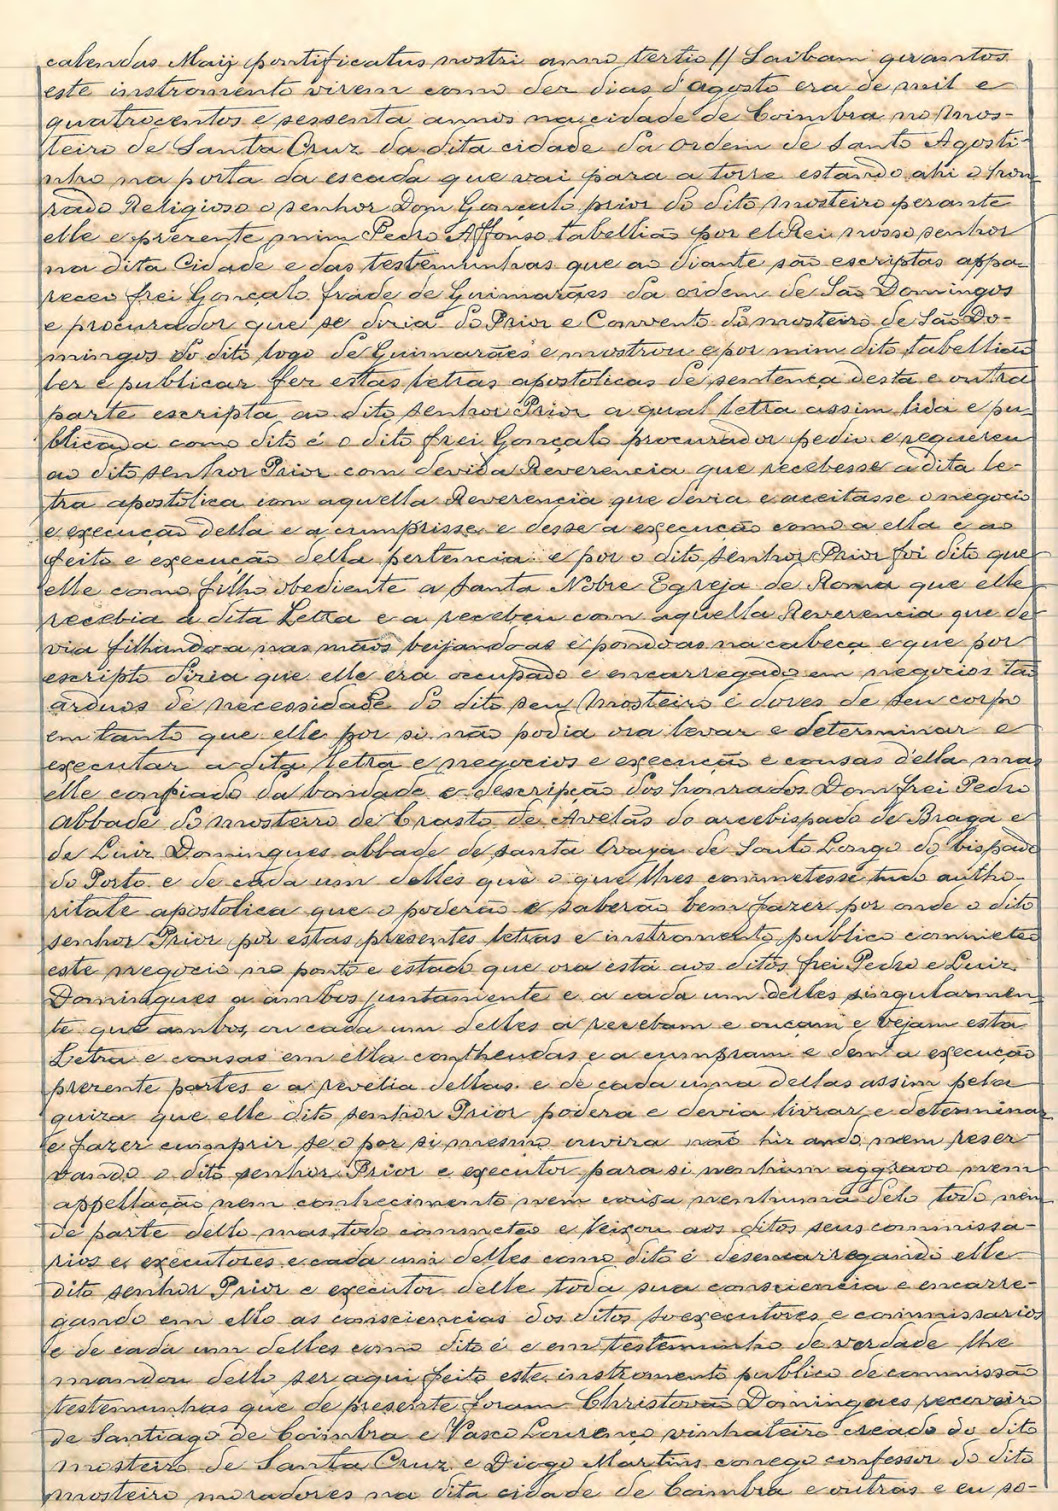 calendas Maij pontificatus nostri anno tertio // Saibam quantos
este instromento virem como dez dias d'agosto era de mil e
quatrocentos e sessenta annos na cidade de Coimbra no Mos-
teiro de Santa Cruz da dita cidade da ordem de Santo Agosti-
nho na porta da escada que vai para a torre estando ahi o hon-
rado Religioso o senhor Dom Gonçalo prior do dito mosteiro perante
elle e prezente mim Pedro Affonso tabellião por el Rei nosso senhor
na dita Cidade e das testemunhas que ao diante são escriptas appa-
receo frei Gonçalo frade de Guimarães da ordem de São Domingos
e procurador que se dizia do Prior e Convento do mosteiro de São Do-
mingos do dito logo de Guimarães e mostrou e por mim dito tabellião
ler e publicar fez estas letras apostolicas de sentença desta e outra
parte escripta ao dito senhor Prior a qual letra assim lida e pu-
blicada como dito é o dito frei Gonçalo procurador pediu e requereu
ao dito senhor Prior com devida Reverencia que recebesse a dita le-
tra apostolica com aquella Reverencia que devia e aceitasse o negocio
e execução della e a cumprisse e desse a execução como a ella e ao
feito e execução della pertencia e por o dito senhor Prior foi dito que
elle como filho obediente a Santa Nobre Egreja de Roma que elle
recebia a dita Letra e a recebeu com aquella Reverencia que de-
via filhandoa nas mãos beijandoas e pondoas na cabeça e que por
escripto dizia que elle era occupado e encarregado em negocios tão
arduos de necessidade do dito seu Mosteiro e dores de seu corpo
em tanto que elle por si não podia ora levar e determinar e
executar a dita letra e negocios e execução e cousas d'ella mas
elle confiado da bondade e descripção dos honrados Dom frei Pedro
Abbade do mosteiro de Crasto de Avelãs do arcebispado de Braga e
de Luiz Domingues abbade de santa Ovaya de Souto Longo do bispado
do Porto e de cada um delles que o que lhes commetesse tudo autho-
ritate apostolica que o poderão e saberão bem fazer por onde o dito
senhor Prior por estas presentes letras e instromento publico cometeo
este negocio no ponto e estado que ora está aos ditos frei Pedro e Luiz
Domingues a ambos juntamente e a cada um delles singularmen-
te que ambos ou cada um delles a recebam e ouçam e vejam esta
Letra e cousas em ella contheudas e a cumpram e dem a execução
prezente partes e a revelia dellas e de cada uma dellas assim pela
guiza que elle dito senhor Prior podera e devia livrar e determinar
e fazer cumprir se o por si mesmo ouvira não nem reser-
vando o dito senhor Prior e executor para si nenhum aggravo nem
appellação nem conhecimento nem cousa nenhuma delo todo nem
de parte dello mas todo commeteo e leixou aos ditos seus commissa-
rios e executores e cada um delles como dito é desencarregando elle
dito senhor Prior e executor delle toda sua consciencia e encarre-
gando em ello as consciencias dos ditos soexecutores e commissarios
e de cada um delles como dito é e em testemunho de verdade lhe
mandou dello ser aqui feito este instromento publico de commissão
testemunhas que de presente foram Christovão Domingues recoveiro
de Santiago de Coimbra e Vasco Lourenço vinhateiro creado do dito
mosteiro de Santa Cruz e Diogo Martins conego confessor do dito
mosteiro moradores na dita cidade de Coimbra e outros e eu so-